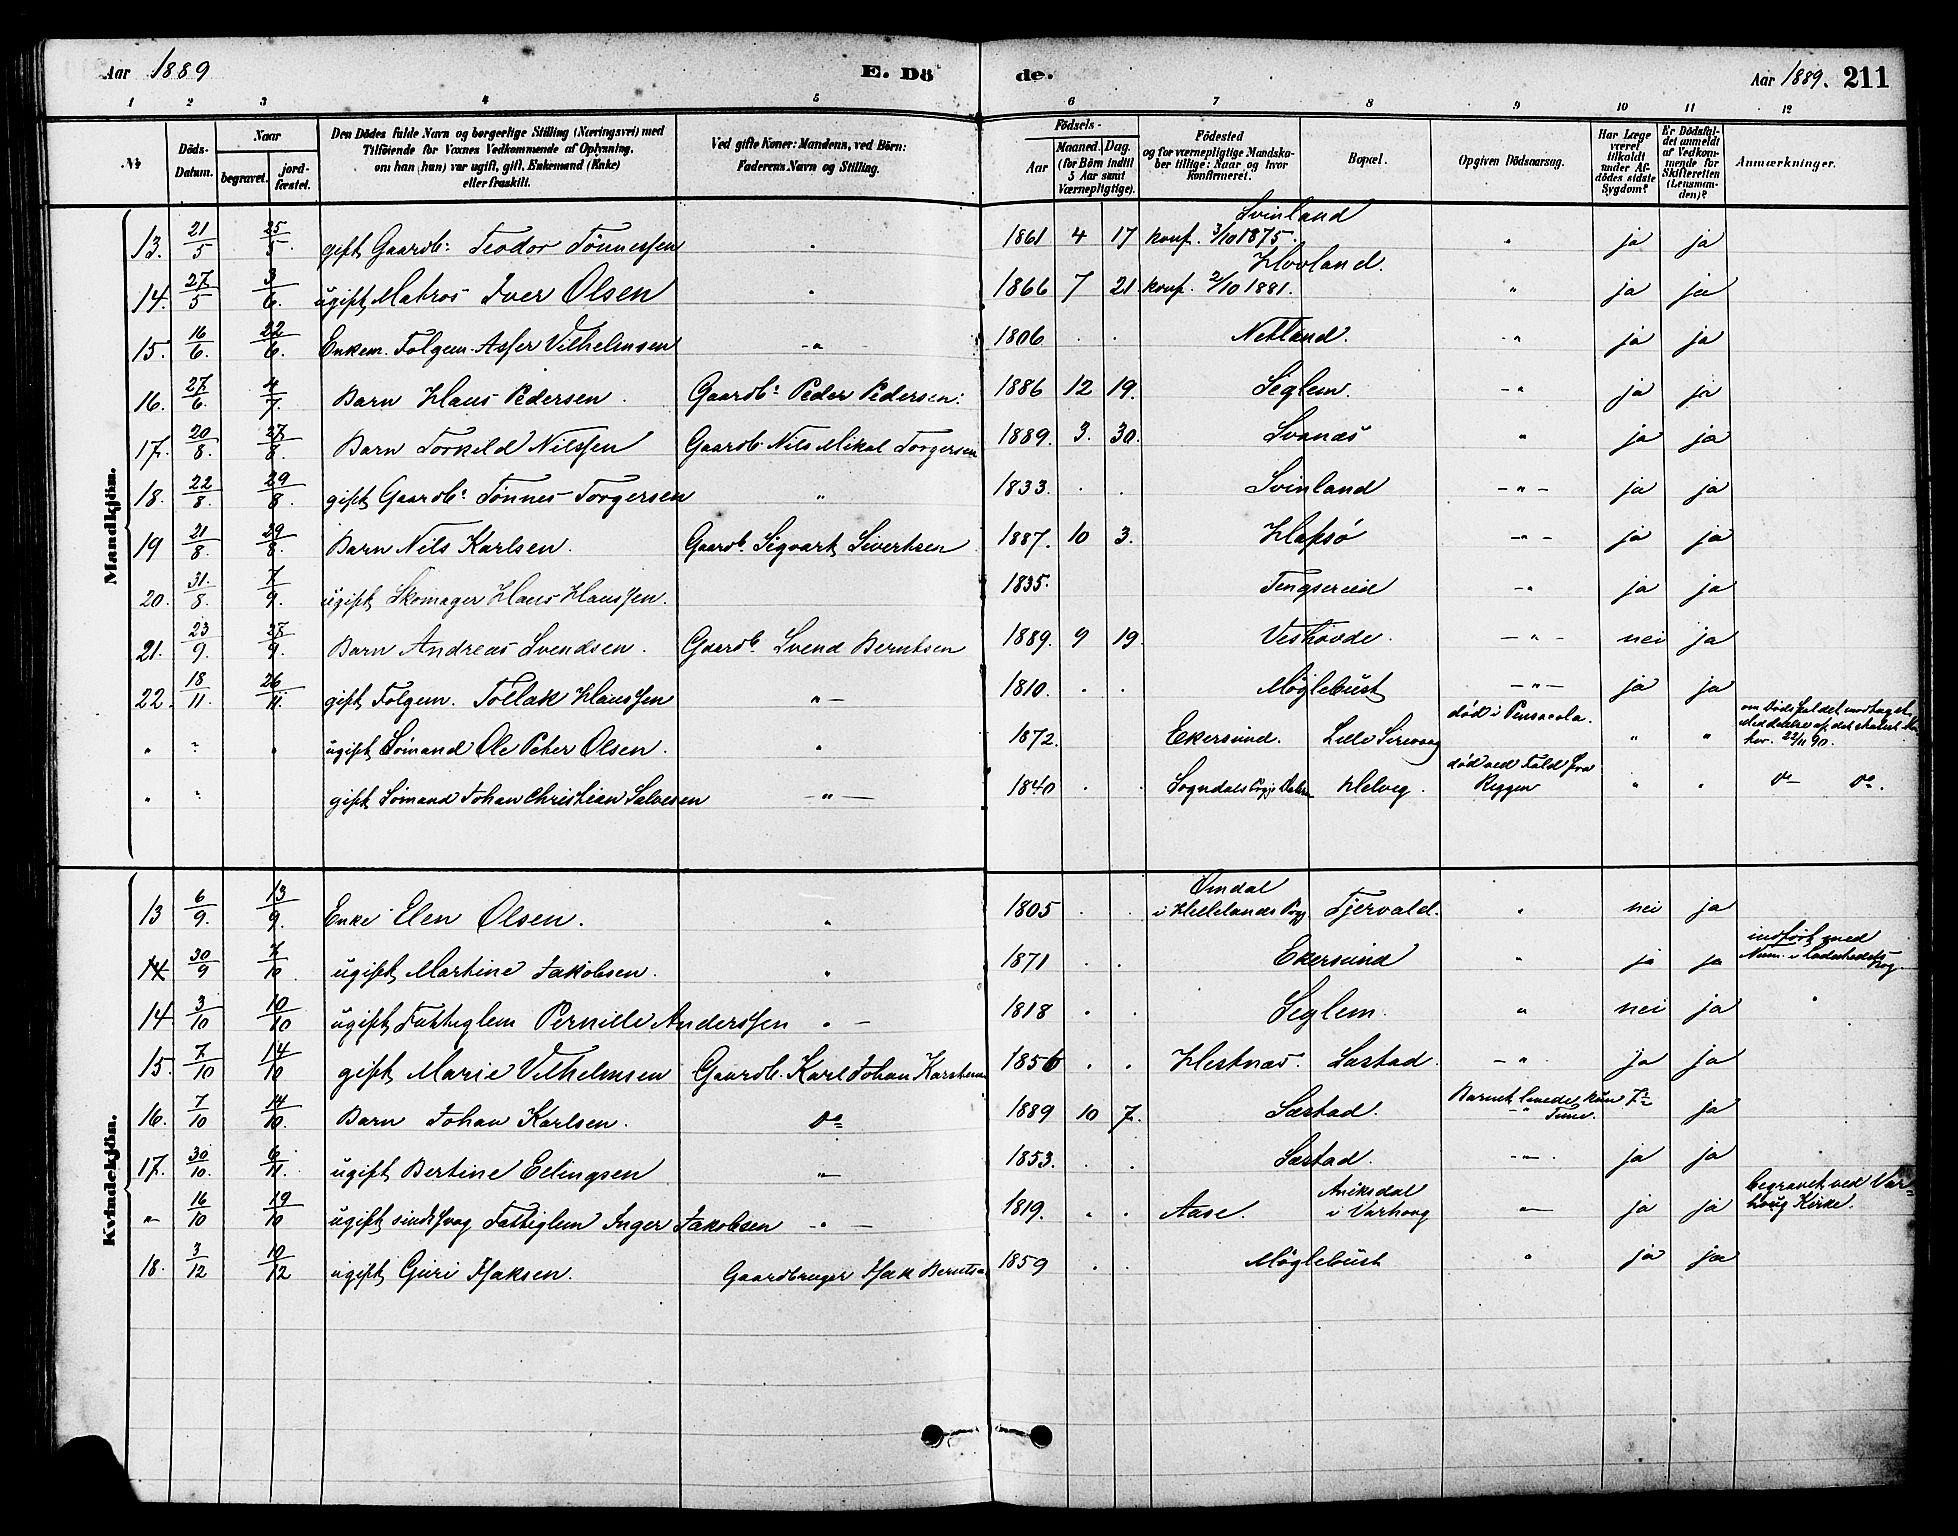 Aar 1889 E. Dö de. Aar 1889. 211
1 2 3 4 5 6 7 8 9 10 11 12
No Döds-Datum. Naar begravet. jordfæstet. Den Dödes fulde Navn og borgerlige Stilling (Næringsvei) med Tilföiende for Voxnes Vedkommende af Oplysning, om han (hun) var ugift, gift, Enkemand (Enke) eller fraskilt. Ved gifte Koner: Mandens, ved Börn: Faderens Navn og Stilling. Födsels- Aar Maaned. Dag. (for Börn indtil 5 Aar samt Værnepligtige). Födested og for værnepligtige Mandskaber tillige: Naar og hvor Konfirmeret. Bopæl. Opgiven Dödsaarsag. Har Læge været tilkaldt under Afdödes sidste Sygdom? Er Dödsfaldet anmeldt af Vedkommende for Skifteretten (Lensmanden)? Anmærkninger.
Mandkjön.
13. 21/5 25/5. gift Gaardb: Teodor Tönnessen " 1861 4 17 konf. 3/10 1875. Svinland " ja ja
14. 27/5 3/6. ugift Matros Iver Olsen " 1866 7 21. konf. 2/10 1881. Hovland. " ja ja
15. 16/6. 22/6. Enkem. Folgem. Asser Vilhelmsen -"- 1806 . . Netland. -" ja ja
16. 27/6. 4/7. Barn Hans Pedersen. Gaardb: Peder Pedersen: 1886 12 19. Seglem. -" ja ja
17. 20/8. 27/8. Barn Torkild Nilssen Gaardb. Nils Mikal Torgersen 1889. 3. 30. Svanæs " ja ja
18. 22/8. 29/8. gift Gaardb: Tönnes Torgersen " 1833. . . Svinland -"- ja ja
19 21/8. 29/8. Barn Nils Karlsen. Gaardb. Sigvart Sivertsen 1887. 10 3. Hafsö -"- ja ja
20. 31./8. 7/9. ugift Skomager Hans Hanssen. 1835. Tengsereid -" ja ja
21. 23/9. 28/9. Barn Andreas Svendsen. Gaardb. Svend Berntsen 1889. 9 19. Veshovde. -"- nei ja
22. 18/11. 26./11. gift Folgem. Tollak Hanssen "- 1810. . . Möglebust -"- ja ja
" " " ugift Sömand Ole Peter Olsen. " 1872. Ekersund. Lille Sirevaag död i Pensacola. " " om Dödsfaldet modtaget 22/11 90.
" " gift Sömand Johan Christian Salvesen -"- 1840 . . Sogndals Helveg. död ved Fald fra Riggen " " do do.
Kvindekjön.
13 6/9. 13/9. Enke Elen Olsen. " 1805 . . Omdal i Hellelands Pgj. Tjervald. " nei ja
14 30/9 7/10 ugift Martine Jakobsen. " 1871 . . Ekersund " ja ja indfört med Num. i Ladestedets Bog
14. 3/10 10/10 ugift Fattiglem Pernille Anderssen " - 1818 . . Seglem. " nei ja "
15. 7/10 14/10 gift Marie Vilhelmsen Gaardb. Karl Johan Karstensen 1856 . . Hestnæs. Sæstad. -" ja ja
16. 7/10 14/10. Barn Johan Karlsen. do 1889 10 7. Sæstad. Barnet levede kun 7 Timer. -" ja
17. 30/10. 6/11. ugift Bertine Ellingsen "- 1853. . . Sæstad. -"- ja ja
" 16/10 19/10 ugift sindssvag Fattiglem Inger Jakobsen -"- 1819. . . Aase. Aniksdal i Varhaug "- ja ja begravet ved Varhaug Kirke.
18. 3/12 10/12 ugift Guri Isaksen. Gaardbruger Isak Berntsen 1859 . . Möglebust " ja ja